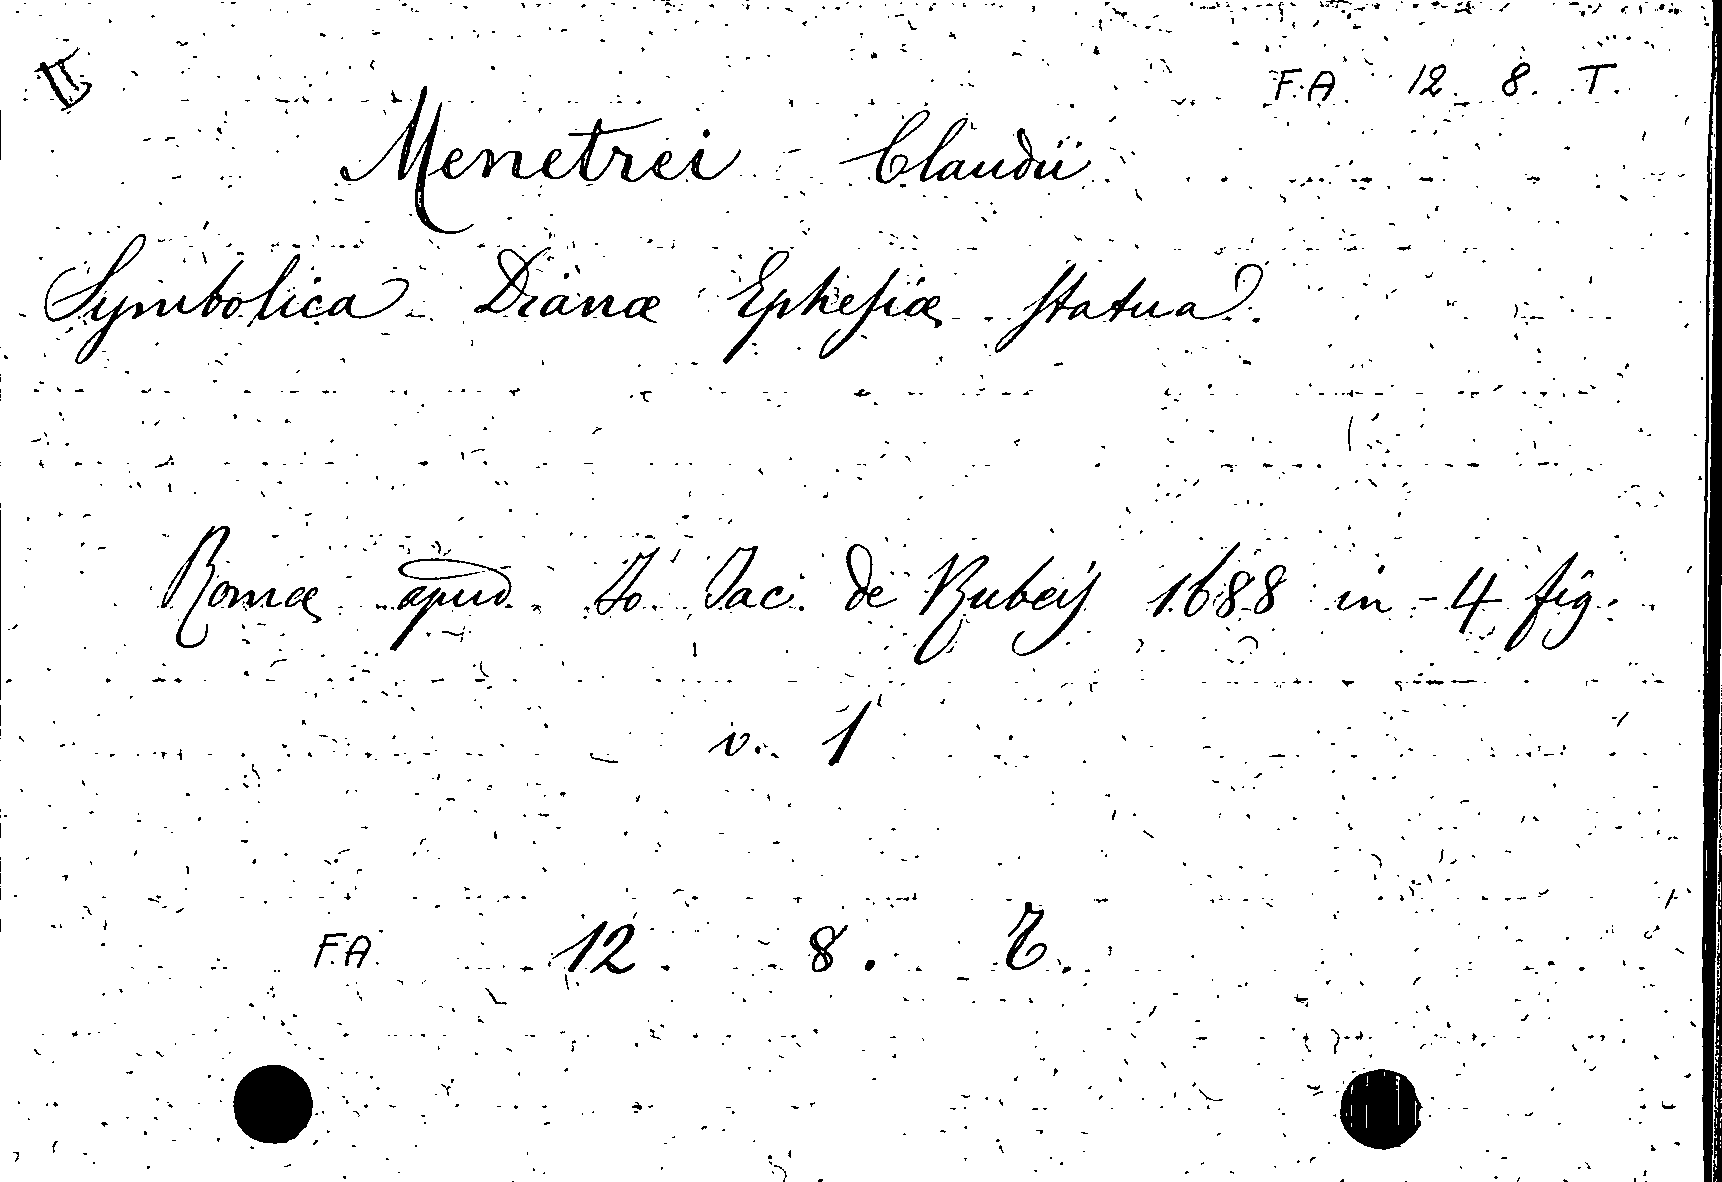 II
F.A. 12. 8. T.
Menetrei Claudii
Symbolica Dianæ Ephesiæ statua.
Romæ apud Io. Jac. de Rubeis 1688 in-4 fig.
v. 1
F.A. 12. 8. T.